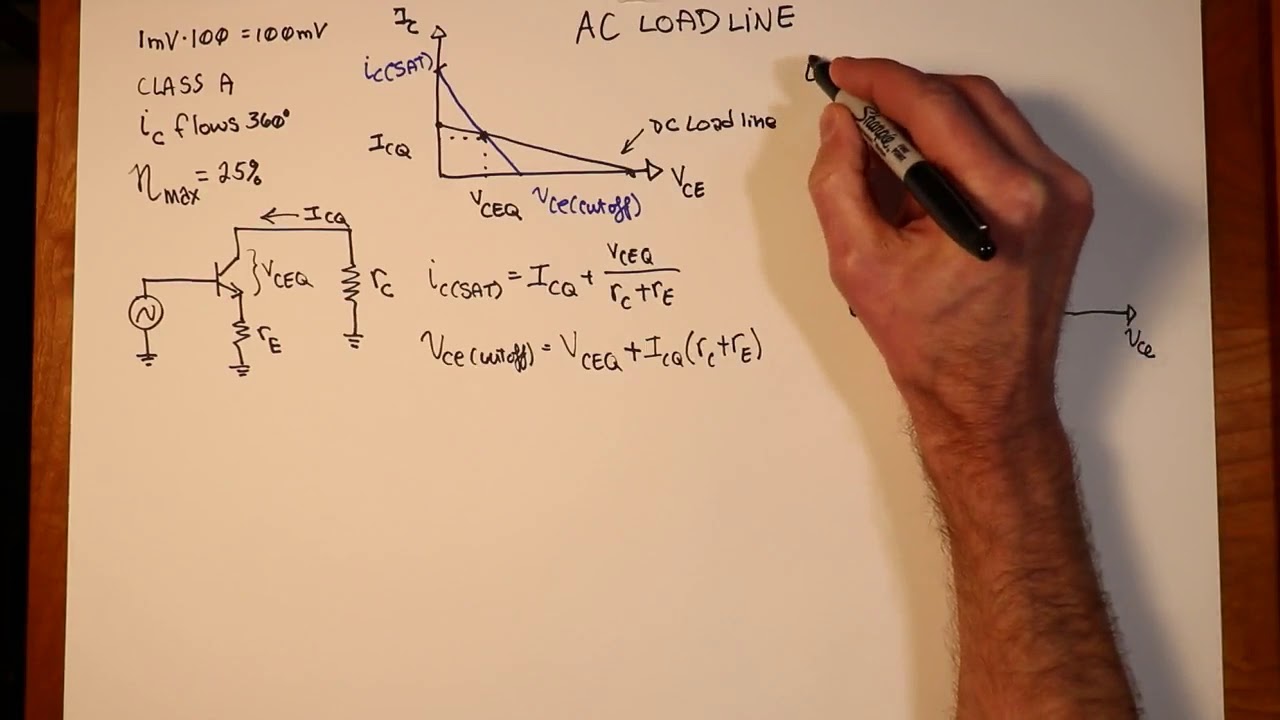 AC LOAD LINE
1mV·100 = 100mV
CLASS A
ic flows 360°
ηmax = 25%
IC
ic(SAT)
ICQ
DC Load line
VCE
VCEQ
vce(cutoff)
ICQ
VCEQ
rC
rE
ic(SAT) = ICQ + VCEQ / rC + rE
vce(cutoff) = VCEQ + ICQ(rC + rE)
Sharpie
vce